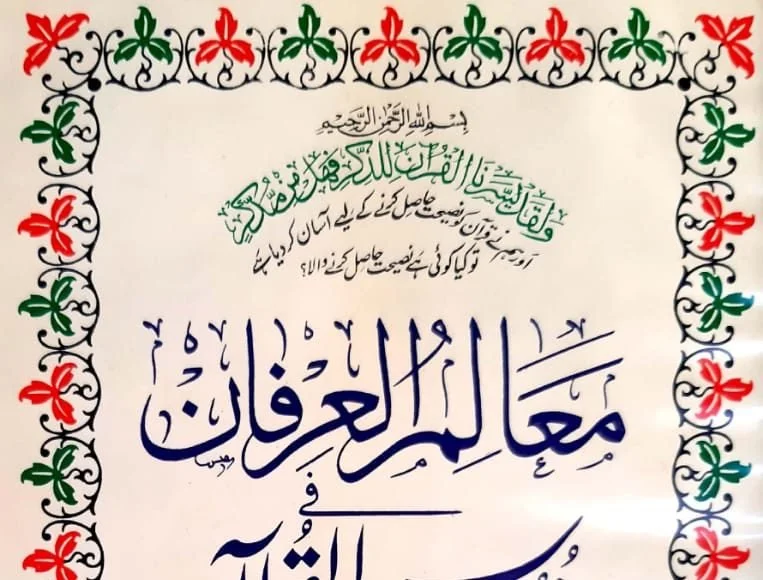 بِسْمِ اللّٰهِ الرَّحْمٰنِ الرَّحِيْمِ
وَلَقَدْ يَسَّرْنَا الْقُرْاٰنَ لِلذِّكْرِ فَهَلْ مِنْ مُّدَّكِرٍ
اور ہم نے قرآن کو نصیحت حاصل کرنے کے لیے آسان کر دیا ہے
تو کیا کوئی ہے نصیحت حاصل کرنے والا؟
مَعَالِمُ الْعِرْفَان
فِي
القُرآن